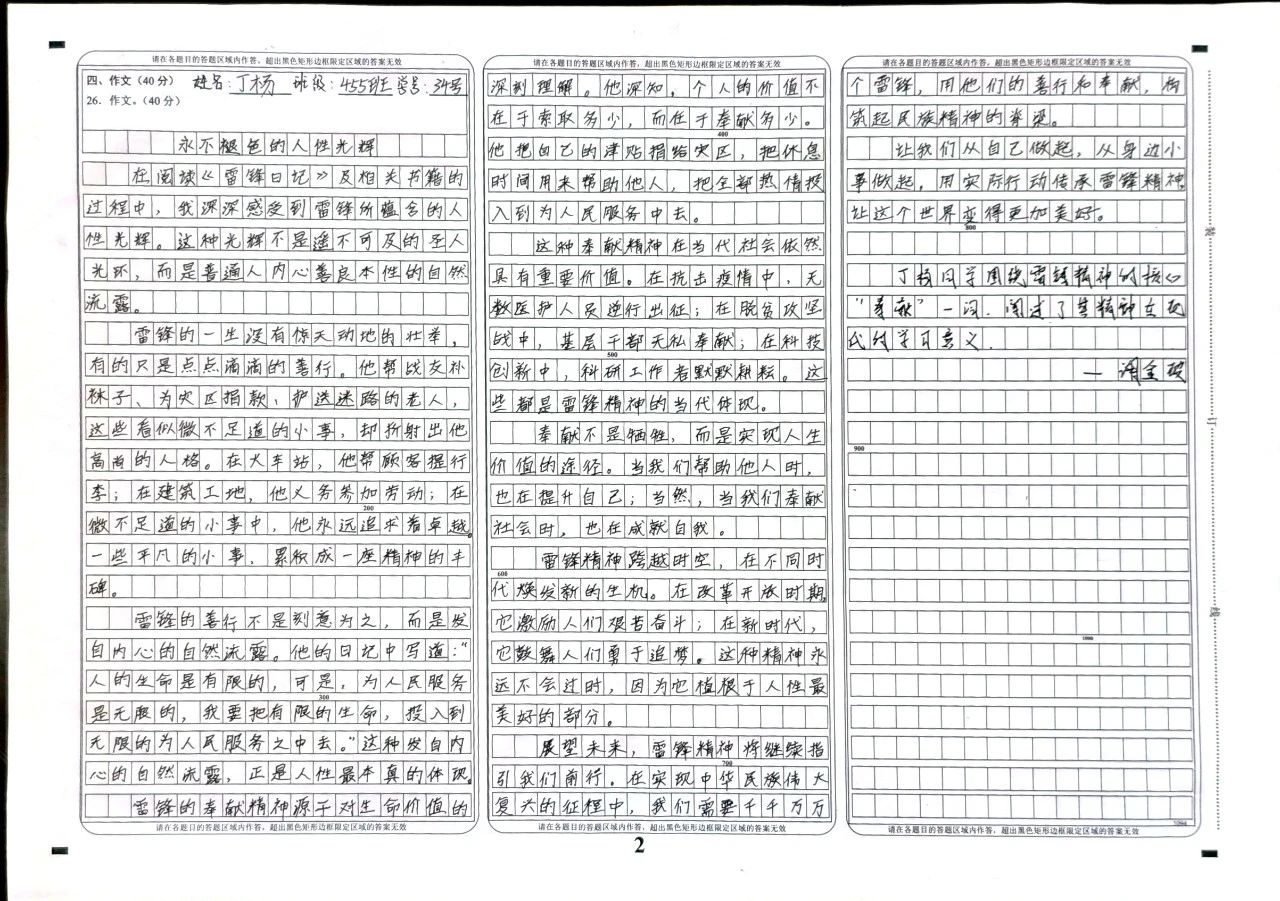 请在各题目的答题区域内作答，超出黑色矩形边框限定区域的答案无效
四、作文（40分） 姓名：丁杨 班级：455班 学号：34号
26．作文。（40分）
永不褪色的人性光辉
在阅读《雷锋日记》及相关书籍的
过程中，我深深感受到雷锋所蕴含的人
性光辉。这种光辉不是遥不可及的圣人
光环，而是普通人内心善良本性的自然
流露。
雷锋的一生没有惊天动地的壮举，
有的只是点点滴滴的善行。他帮战友补
袜子、为灾区捐款、护送迷路的老人，
这些看似微不足道的小事，却折射出他
高尚的人格。在火车站，他帮顾客提行
李；在建筑工地，他义务参加劳动；在
200
微不足道的小事中，他永远追求着卓越。
一些平凡的小事，累积成一座精神的丰
碑。
雷锋的善行不是刻意为之，而是发
自内心的自然流露。他的日记中写道：“
人的生命是有限的，可是，为人民服务
300
是无限的，我要把有限的生命，投入到
无限的为人民服务之中去。”这种发自内
心的自然流露，正是人性最本真的体现。
雷锋的奉献精神源于对生命价值的
请在各题目的答题区域内作答，超出黑色矩形边框限定区域的答案无效
请在各题目的答题区域内作答，超出黑色矩形边框限定区域的答案无效
深刻理解。他深知，个人的价值不
在于索取多少，而在于奉献多少。
400
他把自己的津贴捐给灾区，把休息
时间用来帮助他人，把全部热情投
入到为人民服务中去。
这种奉献精神在当代社会依然
具有重要价值。在抗击疫情中，无
数医护人员逆行出征；在脱贫攻坚
战中，基层干部无私奉献；在科技
500
创新中，科研工作者默默耕耘。这
些都是雷锋精神的当代体现。
奉献不是牺牲，而是实现人生
价值的途径。当我们帮助他人时，
也在提升自己；当然，当我们奉献
社会时，也在成就自我。
雷锋精神跨越时空，在不同时
600
代焕发新的生机。在改革开放时期，
它激励人们艰苦奋斗；在新时代，
它鼓舞人们勇于追梦。这种精神永
远不会过时，因为它植根于人性最
美好的部分。
展望未来，雷锋精神将继续指
700
引我们前行。在实现中华民族伟大
复兴的征程中，我们需要千千万万
请在各题目的答题区域内作答，超出黑色矩形边框限定区域的答案无效
2
请在各题目的答题区域内作答，超出黑色矩形边框限定区域的答案无效
个雷锋，用他们的善行和奉献，构
筑起民族精神的脊梁。
让我们从自己做起，从身边小
事做起，用实际行动传承雷锋精神，
让这个世界变得更加美好。
800
丁杨同学围绕雷锋精神的核心
“奉献”一词，阐述了其精神在现
代的学习意义．
900
1000
请在各题目的答题区域内作答，超出黑色矩形边框限定区域的答案无效
装
订
线